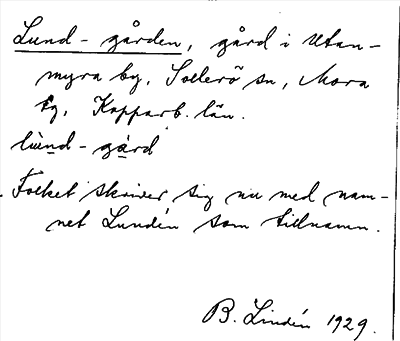 Lund-gården, gård i Utan-
myra by, Sollerö sn, Mora
tg, Kopparb. län.
lùnd-gàrd
Folket skriver sig nu med nam-
net Lundén som tillnamn.
B. Lindén 1929.